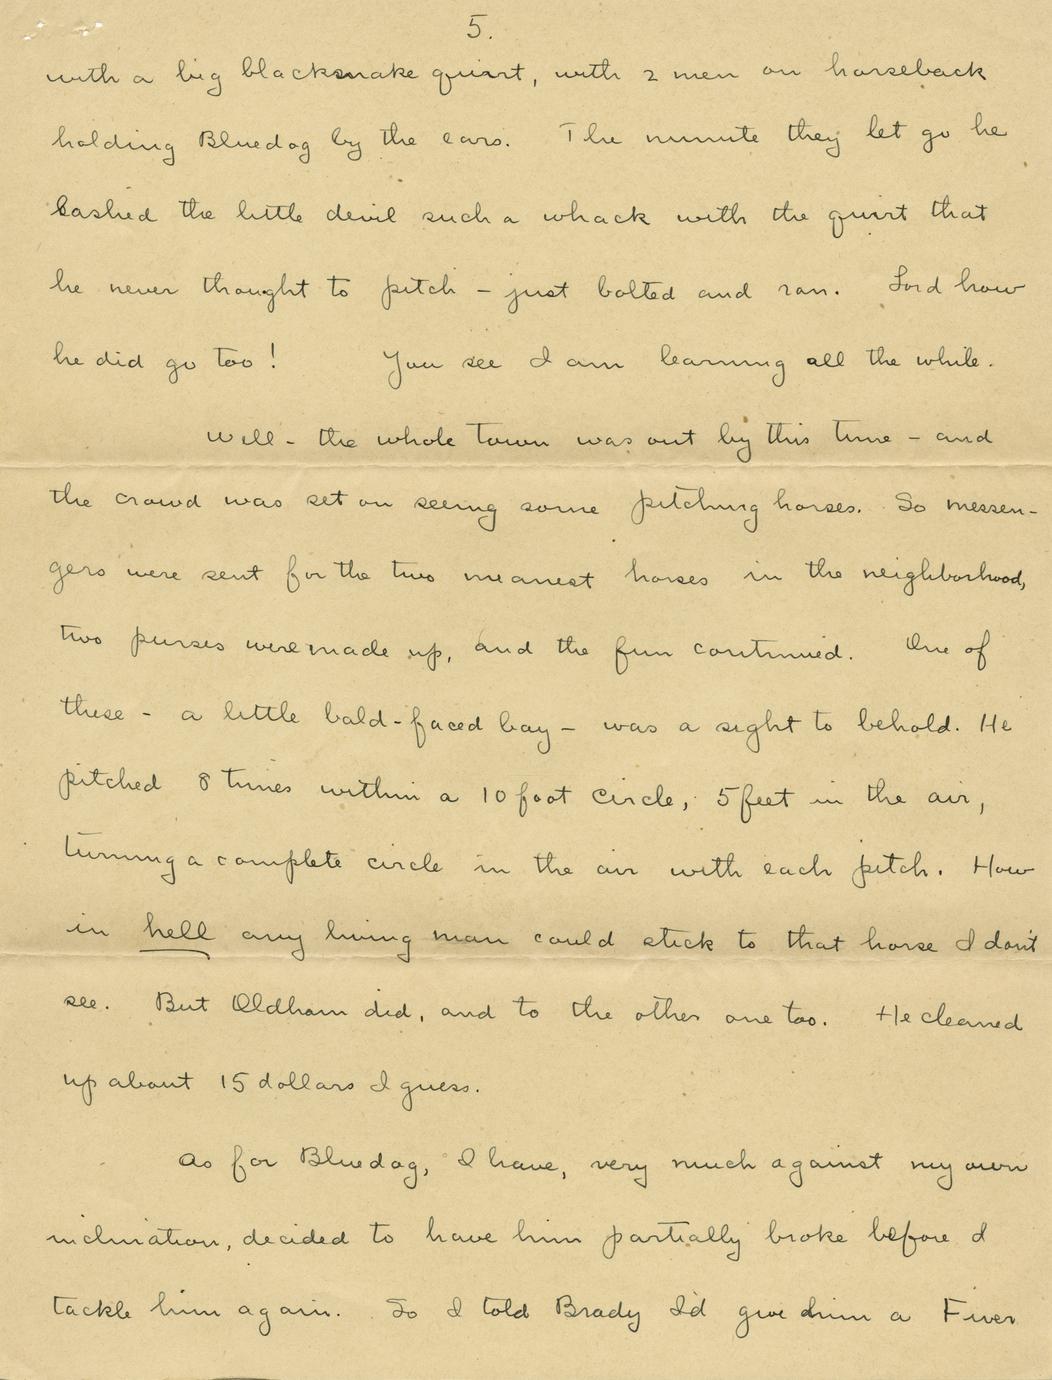 5.
with a big blacksnake quirt, with 2 men on horseback
holding Bluedog by the ears. The minute they let go he
bashed the little devil such a whack with the quirt that
he never thought to pitch – just bolted and ran. Lord how
he did go too! You see I am learning all the while.
Well – the whole town was out by this time – and
the crowd was set on seeing some pitching horses. So messen-
gers were sent for the two meanest horses in the neighborhood,
two purses were made up, and the fun continued. One of
these – a little bald-faced bay – was a sight to behold. He
pitched 8 times within a 10 foot circle, 5 feet in the air,
turning a complete circle in the air with each pitch. How
in hell any living man could stick to that horse I don't
see. But Oldham did, and to the other one too. He cleaned
up about 15 dollars I guess.
As for Bluedog, I have, very much against my own
inclination, decided to have him partially broke before I
tackle him again. So I told Brady I'd give him a Fiver